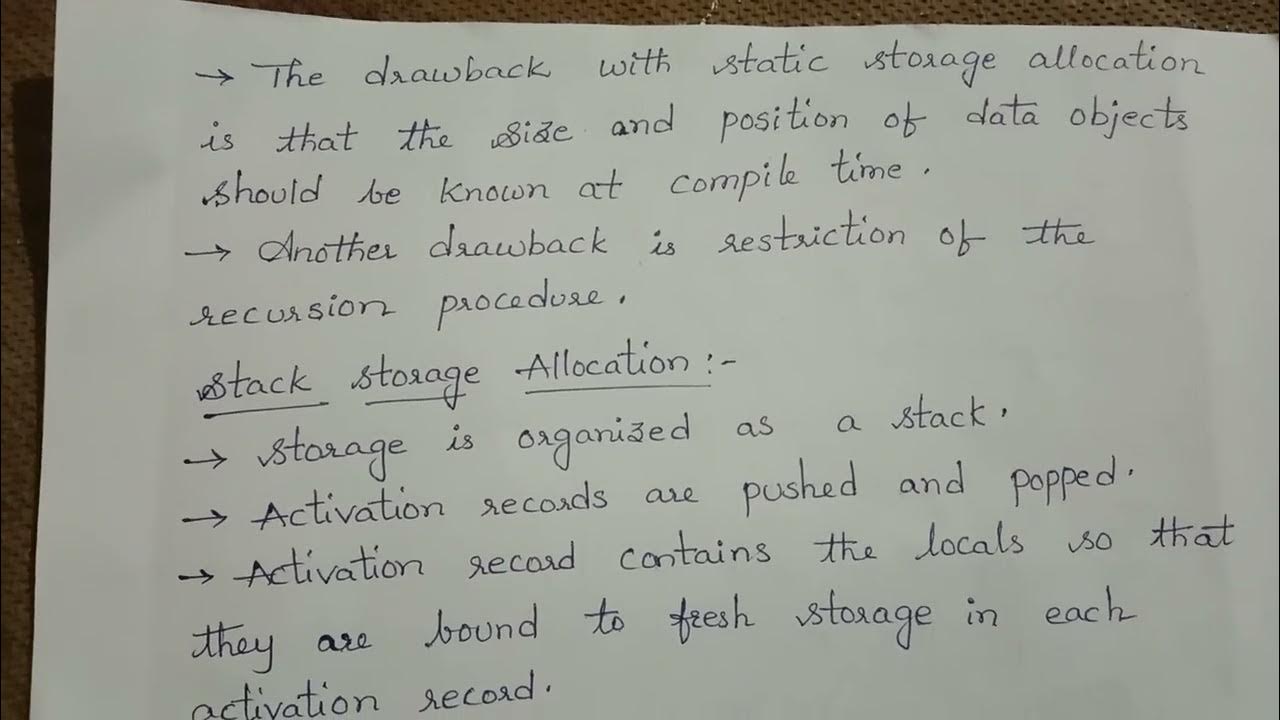 → The drawback with static storage allocation
is that the size and position of data objects
should be known at compile time.
→ Another drawback is restriction of the
recursion procedure.
Stack storage Allocation:-
→ storage is organized as a stack.
→ Activation records are pushed and popped.
→ Activation record contains the locals so that
they are bound to fresh storage in each
activation record.